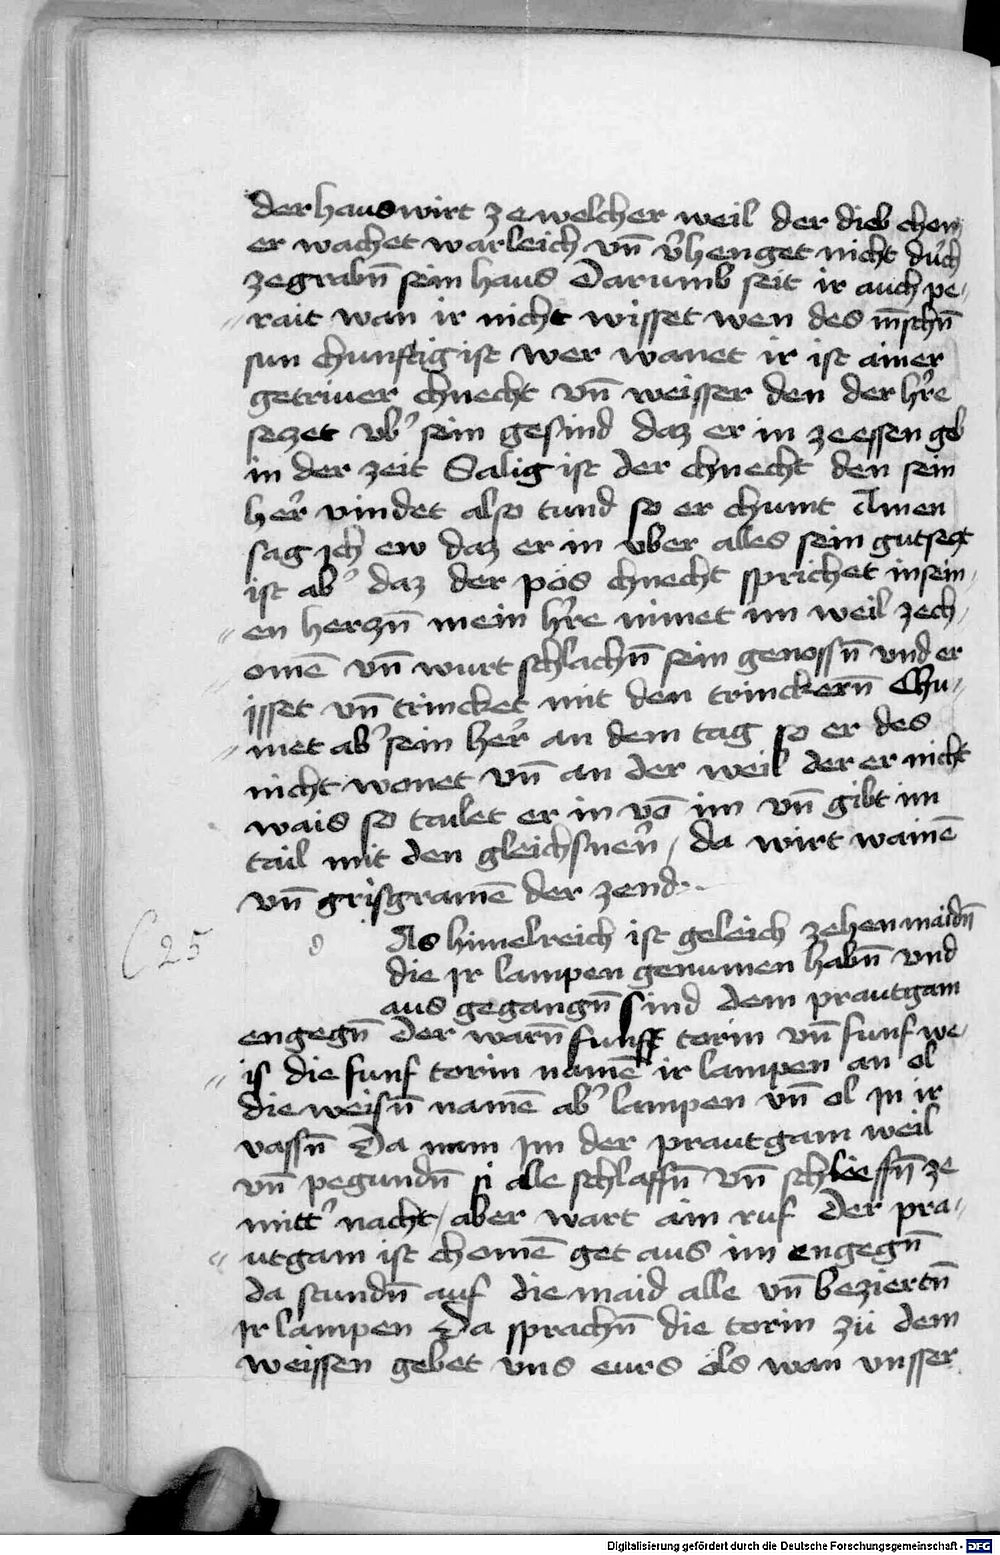 der hauswirt ze welcher weil der dieb chem
er wachet warleich vn̄ v̉henget nicht durch
zegrabn̄ sein haus Darumb seit ir auch pe-
rait wan ir nicht wisset wen des m̄schn̄
sun chunftig ist wer wanet ir ist ainer
getriuer chnecht vn̄ weisser den der hr̉e
sezet vb̉ sein gesind daz er in ze essen geb
in der zeit Salig ist der chnecht den sein
her̉ vindet also tund so er chumt Amen
sag ich ew daz er in vber alles sein gut sezt
ist ab̉ daz der pös chnecht sprichet in sein-
en herzn̄ mein hr̉e nimet im weil ze ch-
omē vn̄ wurt schlachn̄ sein genossn̄ vnd er
isset vn̄ trincket mit den trinckern̄ Chu-
met ab̉ sein her̉ an dem tag so er des
nicht wonet vn̄ an der weil der er nicht
wais so tailet er in vō im vn̄ gibt im
tail mit den gleichsnen̉ / da wirt wainē
vn̄ grisgramē der zend
25
d As himelreich ist geleich zehen maidn̄
die Ir lampen genumen habn̄ vnd
aus gegangn̄ sind dem prautgam
engegn̄ der warn̄ funff torin vn̄ funf we-
is die funf torin namē ir lampen an ol
die weisn̄ namē ab̉ lampen vn̄ ol In ir
vassn̄ Da nam Im der prautgam weil
vn̄ pegundn̄ si alle schlaffn̄ vn̄ schlieffn̄ ze
mitt̉ nacht / aber wart ain ruf der pra-
utgam ist chomē get aus im engegn̄
da stundn̄ auf die maid alle vn̄ beziertn̄
Ir lampen Da sprachn̄ die torin zu dem
weissen gebet vns eurs öls wan vnsser
Digitalisierung gefördert durch die Deutsche Forschungsgemeinschaft - DFG